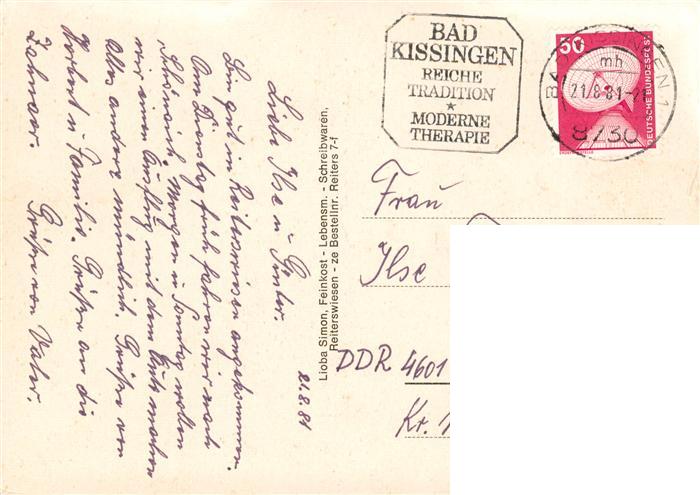 Liebe Ilse u Günter.
Bin gut in Reiterswiesen angekommen.
Am Dienstag früh fahren wir nach
Schönaich. Morgen u Sonntag wollen
wir einen Ausflug mit dem Auto machen
Alles andere mündlich. Grüße von
Herbert u Familie. Grüße an die
Grüße von Vater.
21.8.81
Lioba Simon, Feinkost - Lebensm. - Schreibwaren,
Reiterswiesen - ze Bestellnr. Reiters 7-f
BAD
KISSINGEN
REICHE
TRADITION
★
MODERNE
THERAPIE
BAD KISSINGEN 1
mh
21.8.81-2
8730
50
DEUTSCHE BUNDESPOST
Frau
Ilse
DDR 4601
Kr.